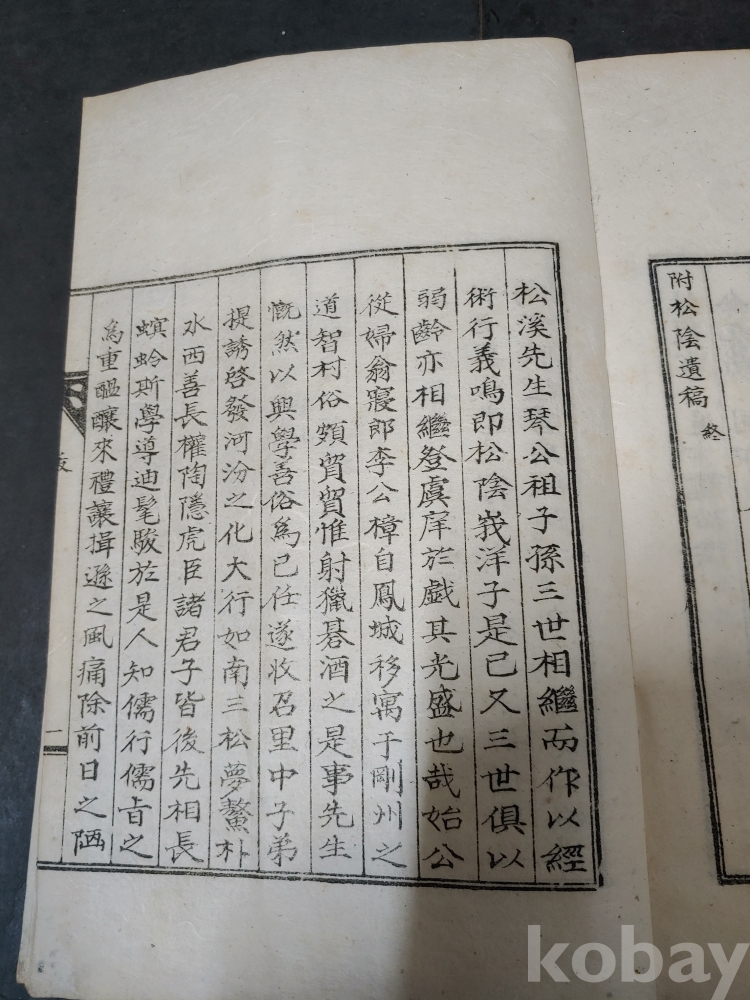 附松陰遺稿 終
松溪先生琴公祖子孫三世相繼而作以經
術行義鳴即松陰峩洋子是已又三世俱以
弱齡亦相繼登虞庠於戱其光盛也哉始公
從婦翁寢郎李公樟自鳳城移寓于剛州之
道智村俗頗貿貿惟射獵碁酒之是事先生
慨然以興學善俗爲已任遂收召里中子弟
提誘啓發河汾之化大行如南三松夢鰲朴
水西善長權陶隱虎臣諸君子皆後先相長
螟蛉斯學導迪髦駿於是人知儒行儒旨之
爲重醞釀來禮讓揖遜之風痛除前日之陋
跋
一
kobay